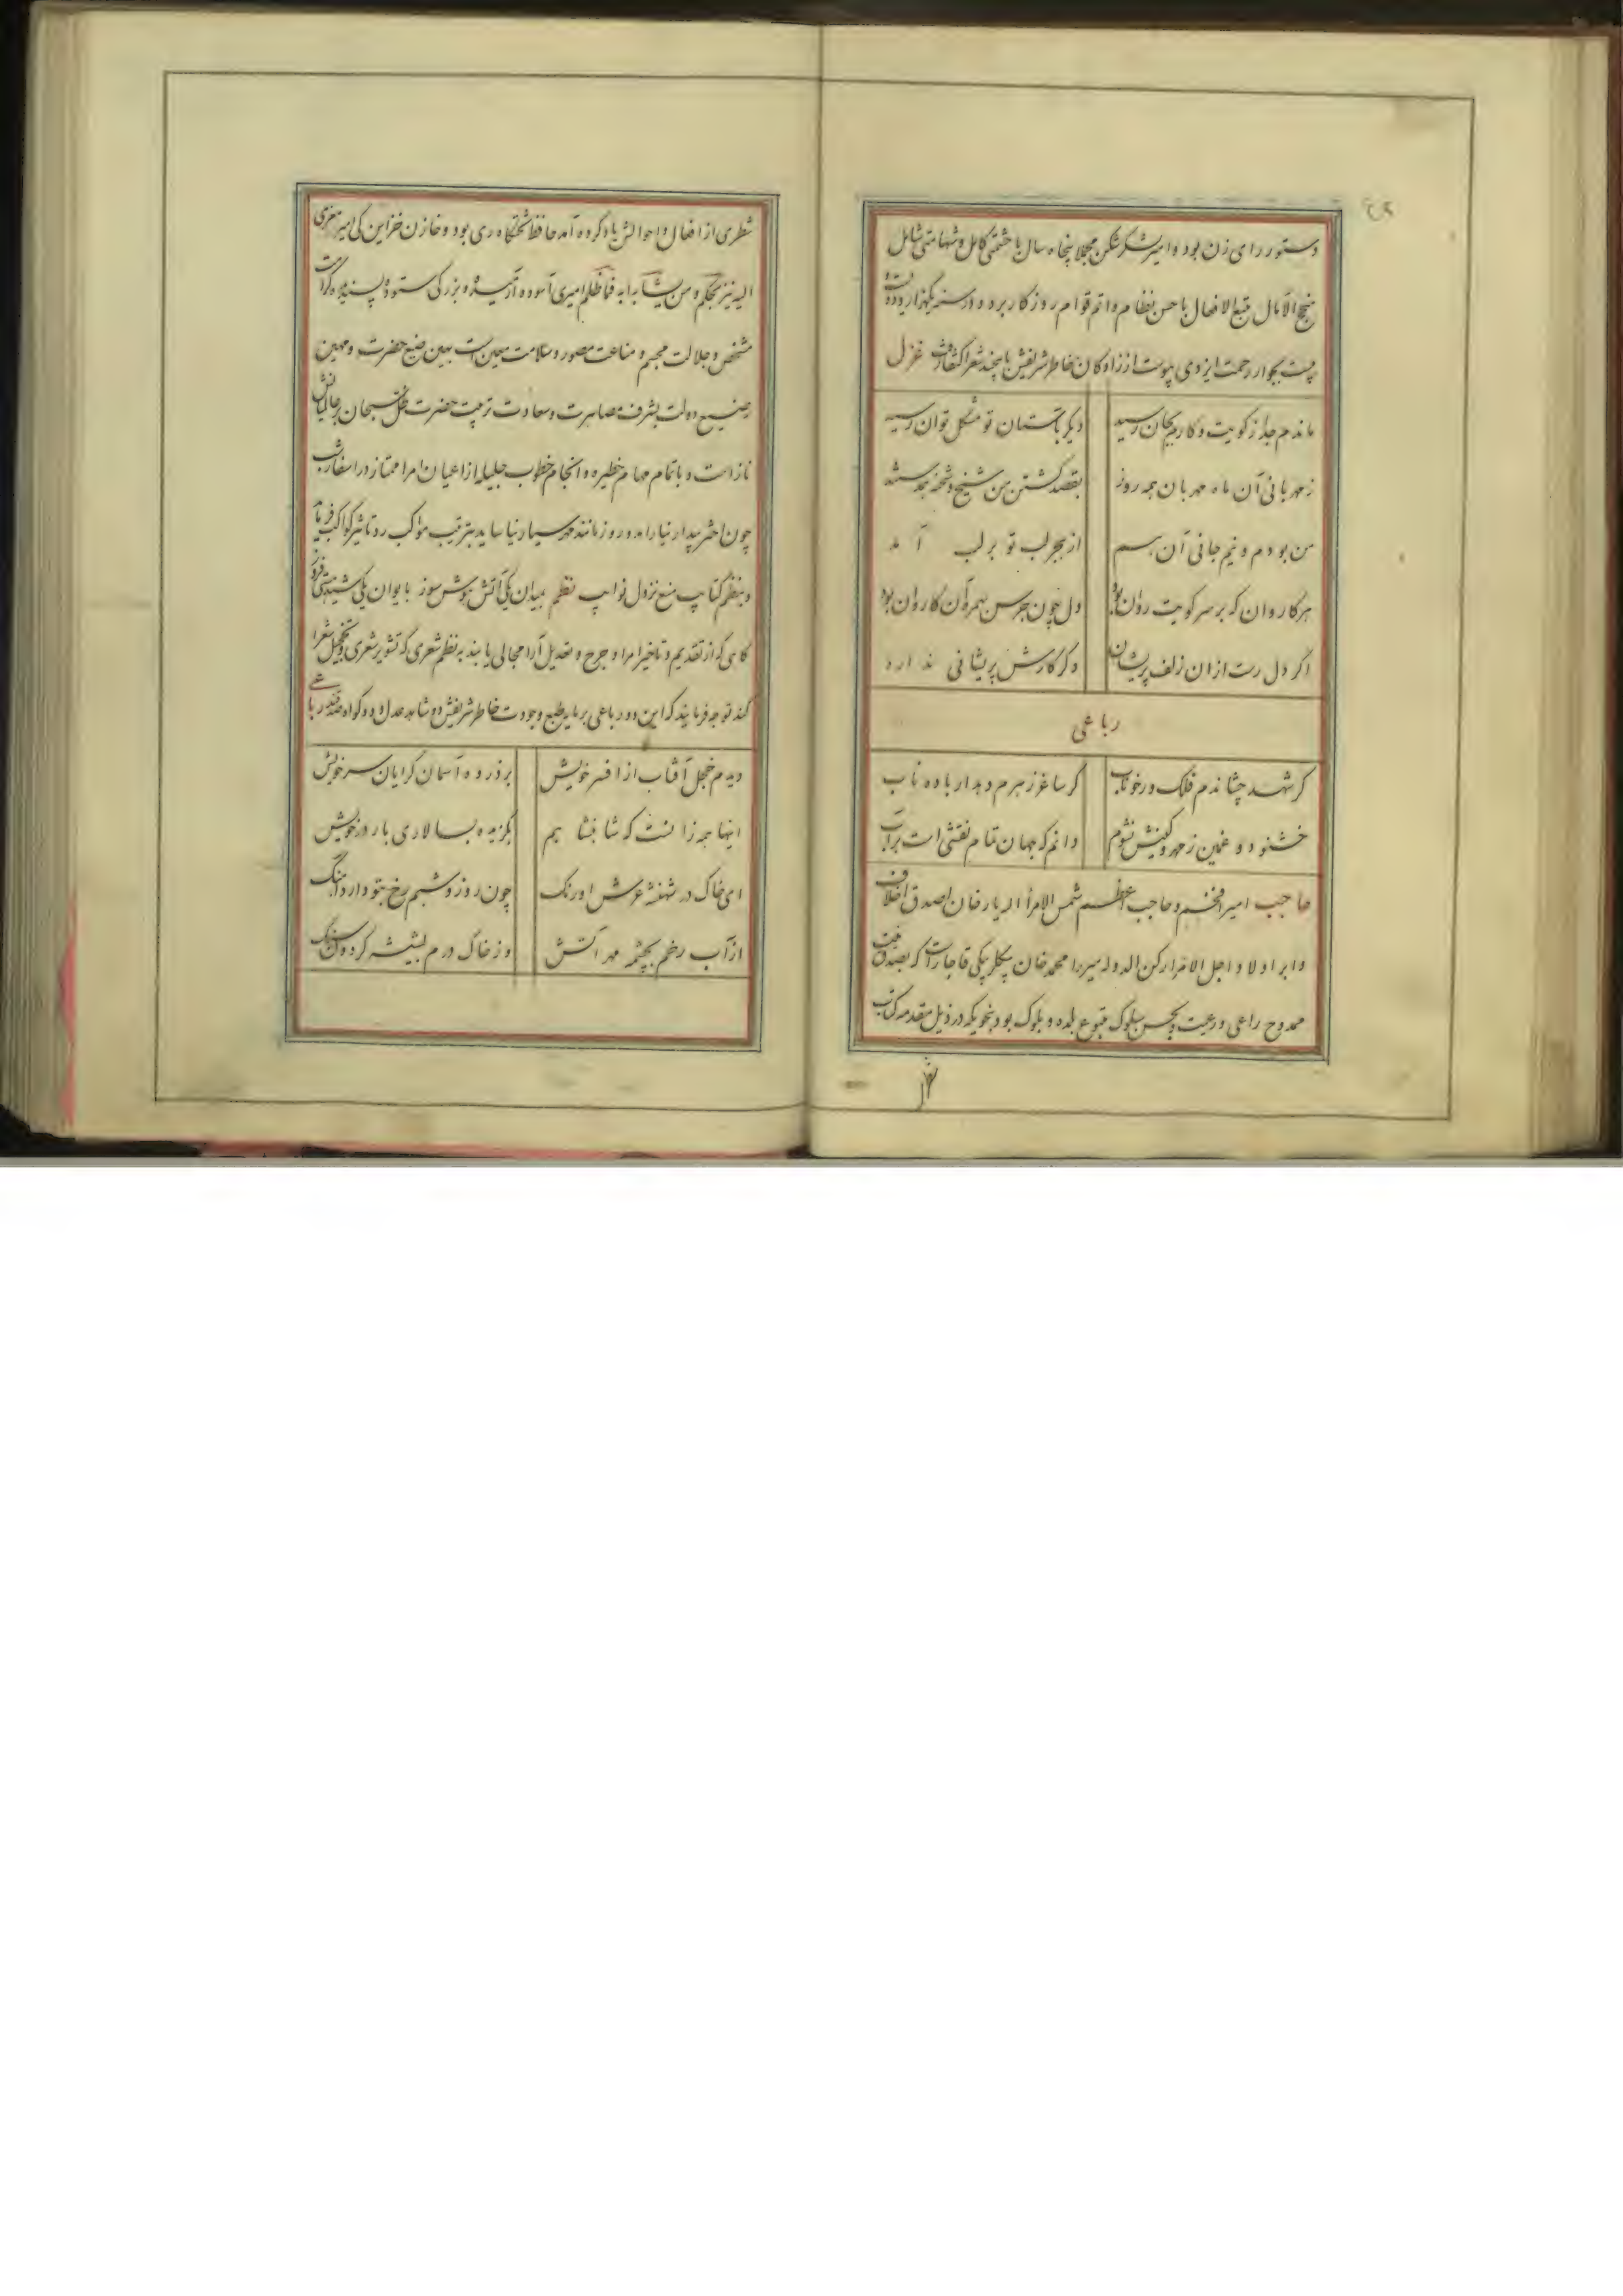 دستور رای زن بود و امیر لشکرشکن مجملا پنجاه سال با حشمتی کامل و شهامتی شامل
منجح الآمال متبع الافعال با حسن نظام و اتم قوام روزگار برد و در سنه یکهزار و دویست و
بیست بجوار رحمت ایزدی پیوست از زادگان خاطر شریفش باین چند شعر اکتفا رفت غزل
ماندم جدا ز کویت و کارم بجان رسید
دیگر بآستان تو مشکل توان رسید
ز مهربانی آن ماه مهربان همه روز
بقصد کشتن من شیخ و شحنه همدستند
من بودم و نیم جانی آن هم
از هجر لب تو بر لب آمد
هر کاروان که بر سر کویت روان بود
دل چون جرس بهمره آن کاروان بود
اگر دل رست از آن زلف پریشان
دگر کارش پریشانی ندارد
رباعی
گر شهد چشاندم فلک ور خوناب
گر ساغر زهرم دهد ار باده ناب
خشنود و غمین ز مهر و کینش نشوم
دانم که جهان تمام نقشی است بر آب
حاجب امیر افخم و حاجب اعظم شمس الامرأ الهیارخان اصدق اخلاف
و ابر اولاد اجل الامرا رکن الدوله میرزا محمد خان بیگلربیگی قاجار است که بصدق نیت
ممدوح راعی و رعیت و بحسن سلوک متبوع بلده و بلوک بود بنحویکه در ذیل مقدمه کتاب
شطری از افعال و احوالش یاد کرده آمد حافظ تختگاه ری بود و خازن خزاین کی امیر معزی
الیه نیز بحکم و من یشابه ابه فما ظلم امیری آسوده آزرمیده و بزرگی ستوده پسندیده کرامت
مشخص و جلالت مجسم و مناعت مصور و سلامت معین است بهین صنیع حضرت و مهین
رضیع دولت بشرف مصاهرت و سعادت تربیت حضرت ظل سبحان بر عالمیانش
ناز است و باتمام مهام خطیره و انجام خطوب جلیله از اعیان امرا ممتاز در اسفار شب
چون اختر بیدار نیارامد و روز مانند مهر سیار نیاساید بترتیب مواکب رد تاثیر کواکب فرماید
و بنظم کتایب منع نزول نوایب نظم بمیدان یکی آتش هوش سوز بایوان یکی شید گیتی فروز
گاهی که از تقدیم و تاخیر امرا و جرح و تعدیل آرا مجالی یابند به نظم شعری که تشویر شعری و تخجیل شعرا
کند توجه فرمایند که این دو رباعی بر مایه طبع و جودت خاطر شریفش دو شاهد عدل و دو گواه صدقند رباعی
دیدم خجل آفتاب از افسر خویش
بر ذروه آسمان گرایان سر خویش
اینها همه زانست که شاهنشاهیم
بگزیده بسالاری بار در خویش
ای خاک در شهنشه عرش اورنگ
چون روز و شبم رخ بتو دارد آهنگ
از آب رخم بچشم مهر آتش
وز خاک درم بشیشه کردون سنگ